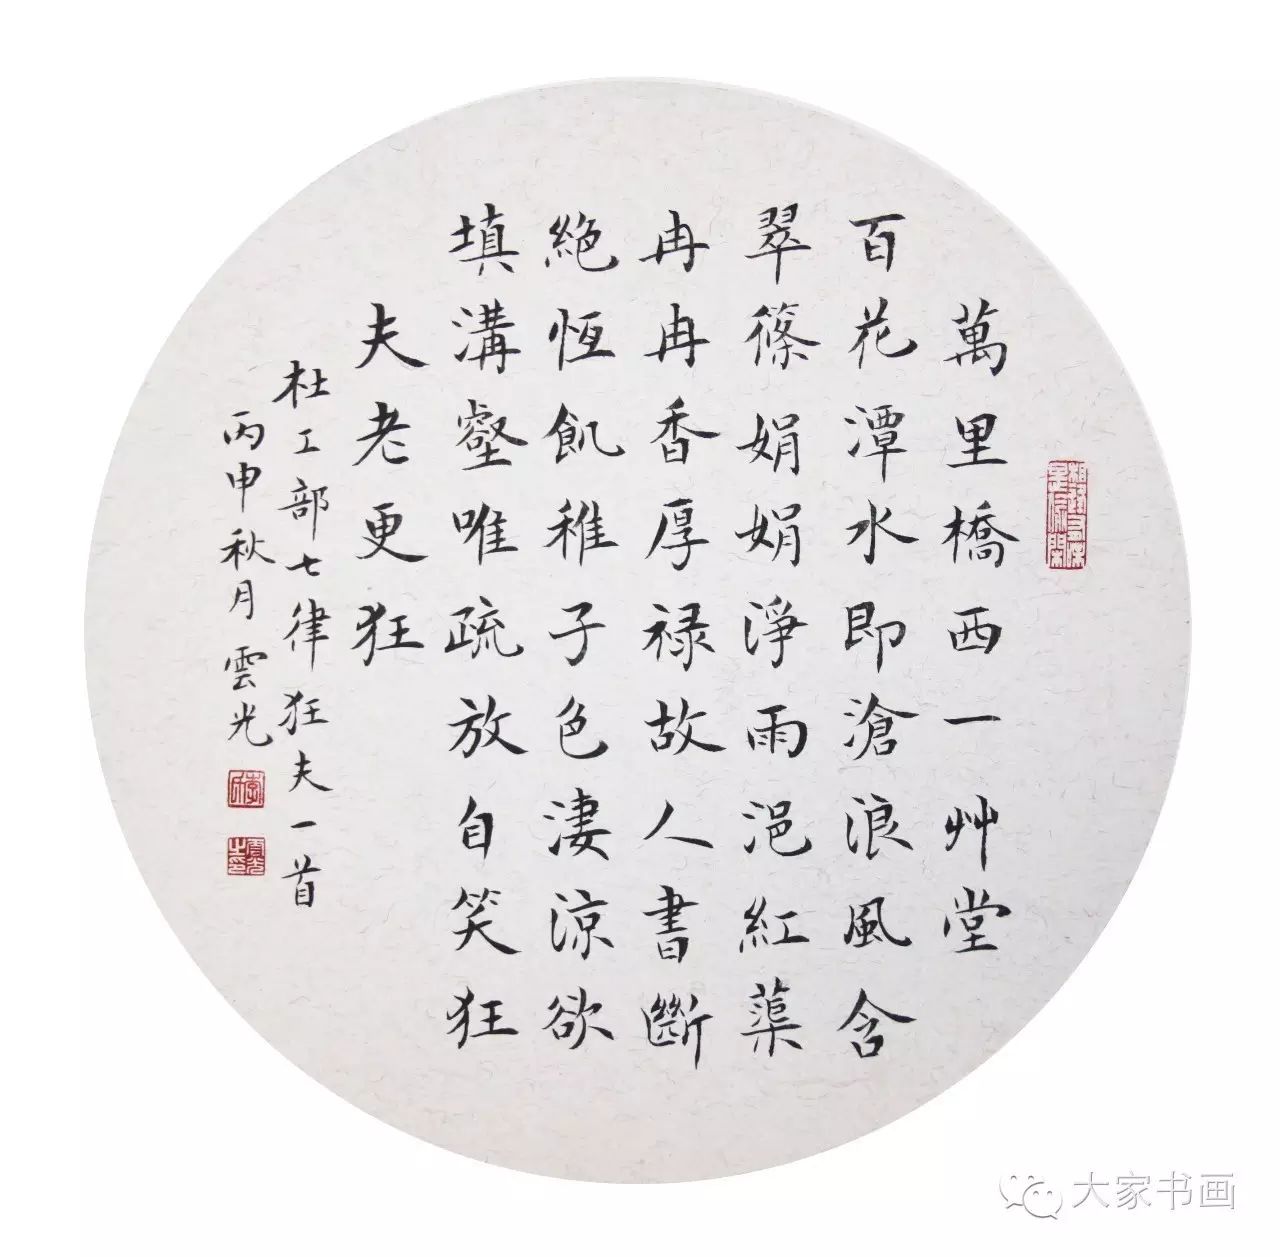 萬里橋西一艸堂
百花潭水即滄浪風含
翠篠娟娟淨雨浥紅蕖
冉冉香厚禄故人書斷
絕恆飢稚子色淒涼欲
填溝壑唯疏放自笑狂
夫老更狂
杜工部七律狂夫一首
丙申秋月雲光
大家书画